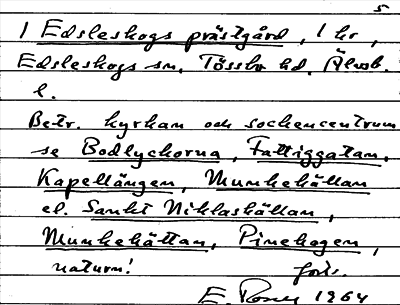 5
1 Edsleskogs prästgård, 1 hr,
Edsleskogs sn. Tössbo hd. Älvsb.
l.
Betr. kyrkan och sockencentrum
se Bodlyckorna, Fattiggatan,
Kapellängen, Munkekällan
el. Sankt Niklaskällan,
Munkehättan, Pinehagen,
naturn! forts.
E. 1964